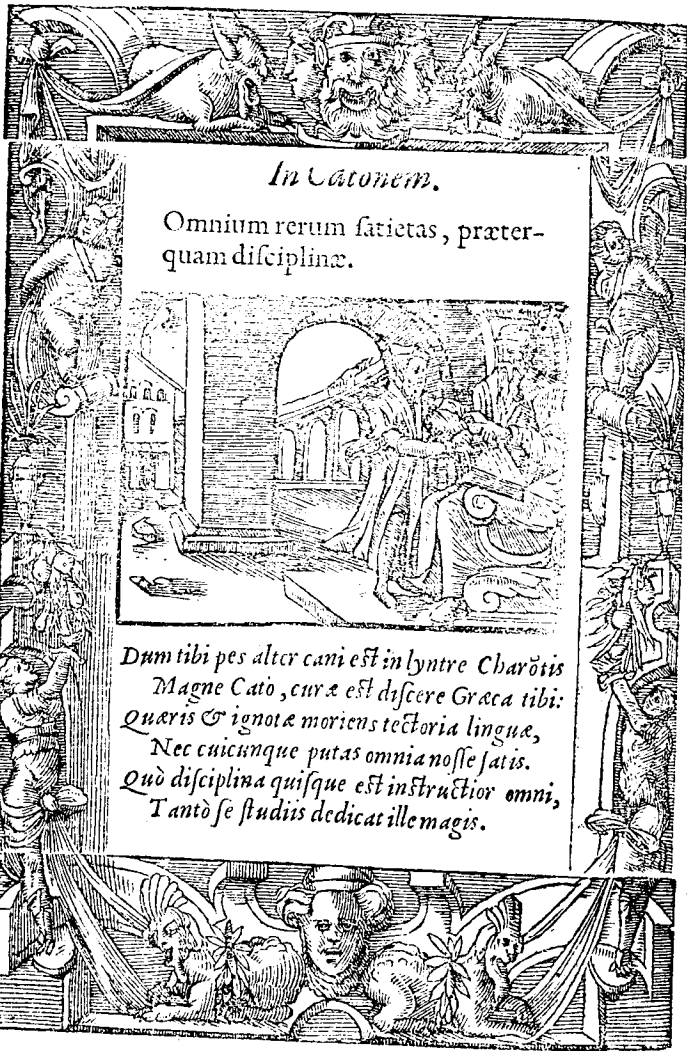 In Catonem.
Omnium rerum ſatietas, præter-
quam diſciplinæ.
Dum tibi pes alter cani eſt in lyntre Charõtis
Magne Cato, curæ eſt diſcere Græca tibi:
Quæris & ignotæ moriens tectoria linguæ,
Nec cuicunque putas omnia noſſe ſatis.
Quò diſciplina quiſque eſt inſtructior omni,
Tantò ſe ſtudiis dedicat ille magis.